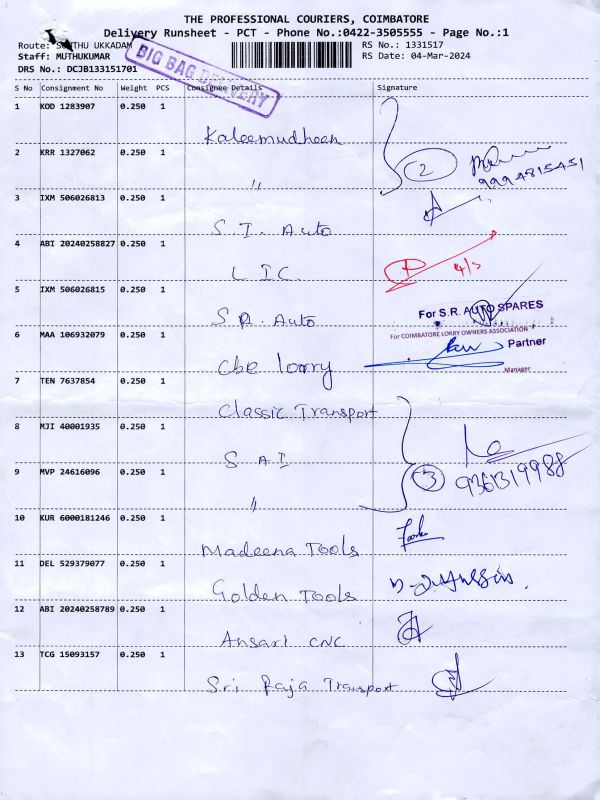 THE PROFESSIONAL COURIERS, COIMBATORE
Delivery Runsheet - PCT - Phone No.:0422-3505555 - Page No.:1
Route: SOUTHU UKKADAM
RS No.: 1331517
Staff: MUTHUKUMAR
RS Date: 04-Mar-2024
DRS No.: DCJB133151701
BIG BAG DELIVERY
S No Consignment No Weight PCS Consignee Details Signature
1 KOD 1283907 0.250 1 Kaleemudheen
2 KRR 1327062 0.250 1 "
2
9994815451
3 IXM 506026813 0.250 1 S.I. Auto
4 ABI 20240258827 0.250 1 LIC
4/3
5 IXM 506026815 0.250 1 S.R. Auto
For S.R. AUTO SPARES
Partner
6 MAA 106932079 0.250 1 Cbe lorry
For COIMBATORE LORRY OWNERS ASSOCIATION
Manager
7 TEN 7637854 0.250 1 Classic Transport
8 MJI 40001935 0.250 1 SAI
9 MVP 24616096 0.250 1 "
3
9361319988
10 KUR 6000181246 0.250 1 Madeena Tools
11 DEL 529379077 0.250 1 Golden Tools
12 ABI 20240258789 0.250 1 Ansari CNC
13 TCG 15093157 0.250 1 Sri Raja Transport